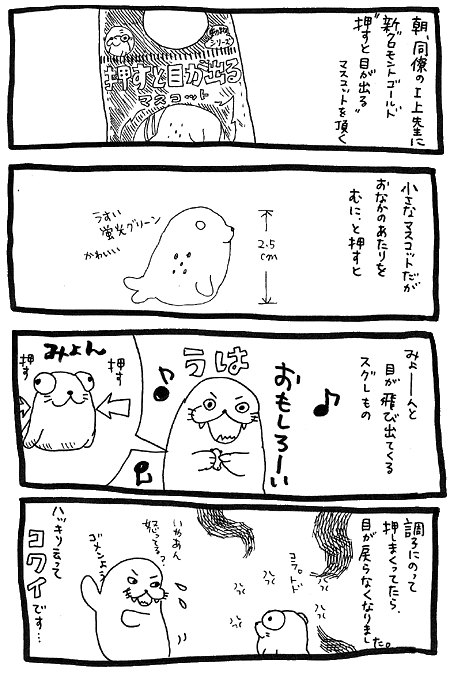 朝、同僚のI上先生に
新ダモントゴールド
"押すと目が出る"
マスコットを頂く
シリーズ
押すと目が出る
マスコット
小さなマスコットだが
おなかのあたりを
むに、と押すと
2.5
cm
うすい
蛍光グリーン
かわいい
みょーんと
目が飛び出てくる
スグレもの
おもしろーい
うは
みょん
押す
押す
調子にのって
押しまくってたら、
目が戻らなくなりました。
コラ。トド
いやあん
怒ってる?
ゴメンよう
ハッキリ云って
コワイ
です…